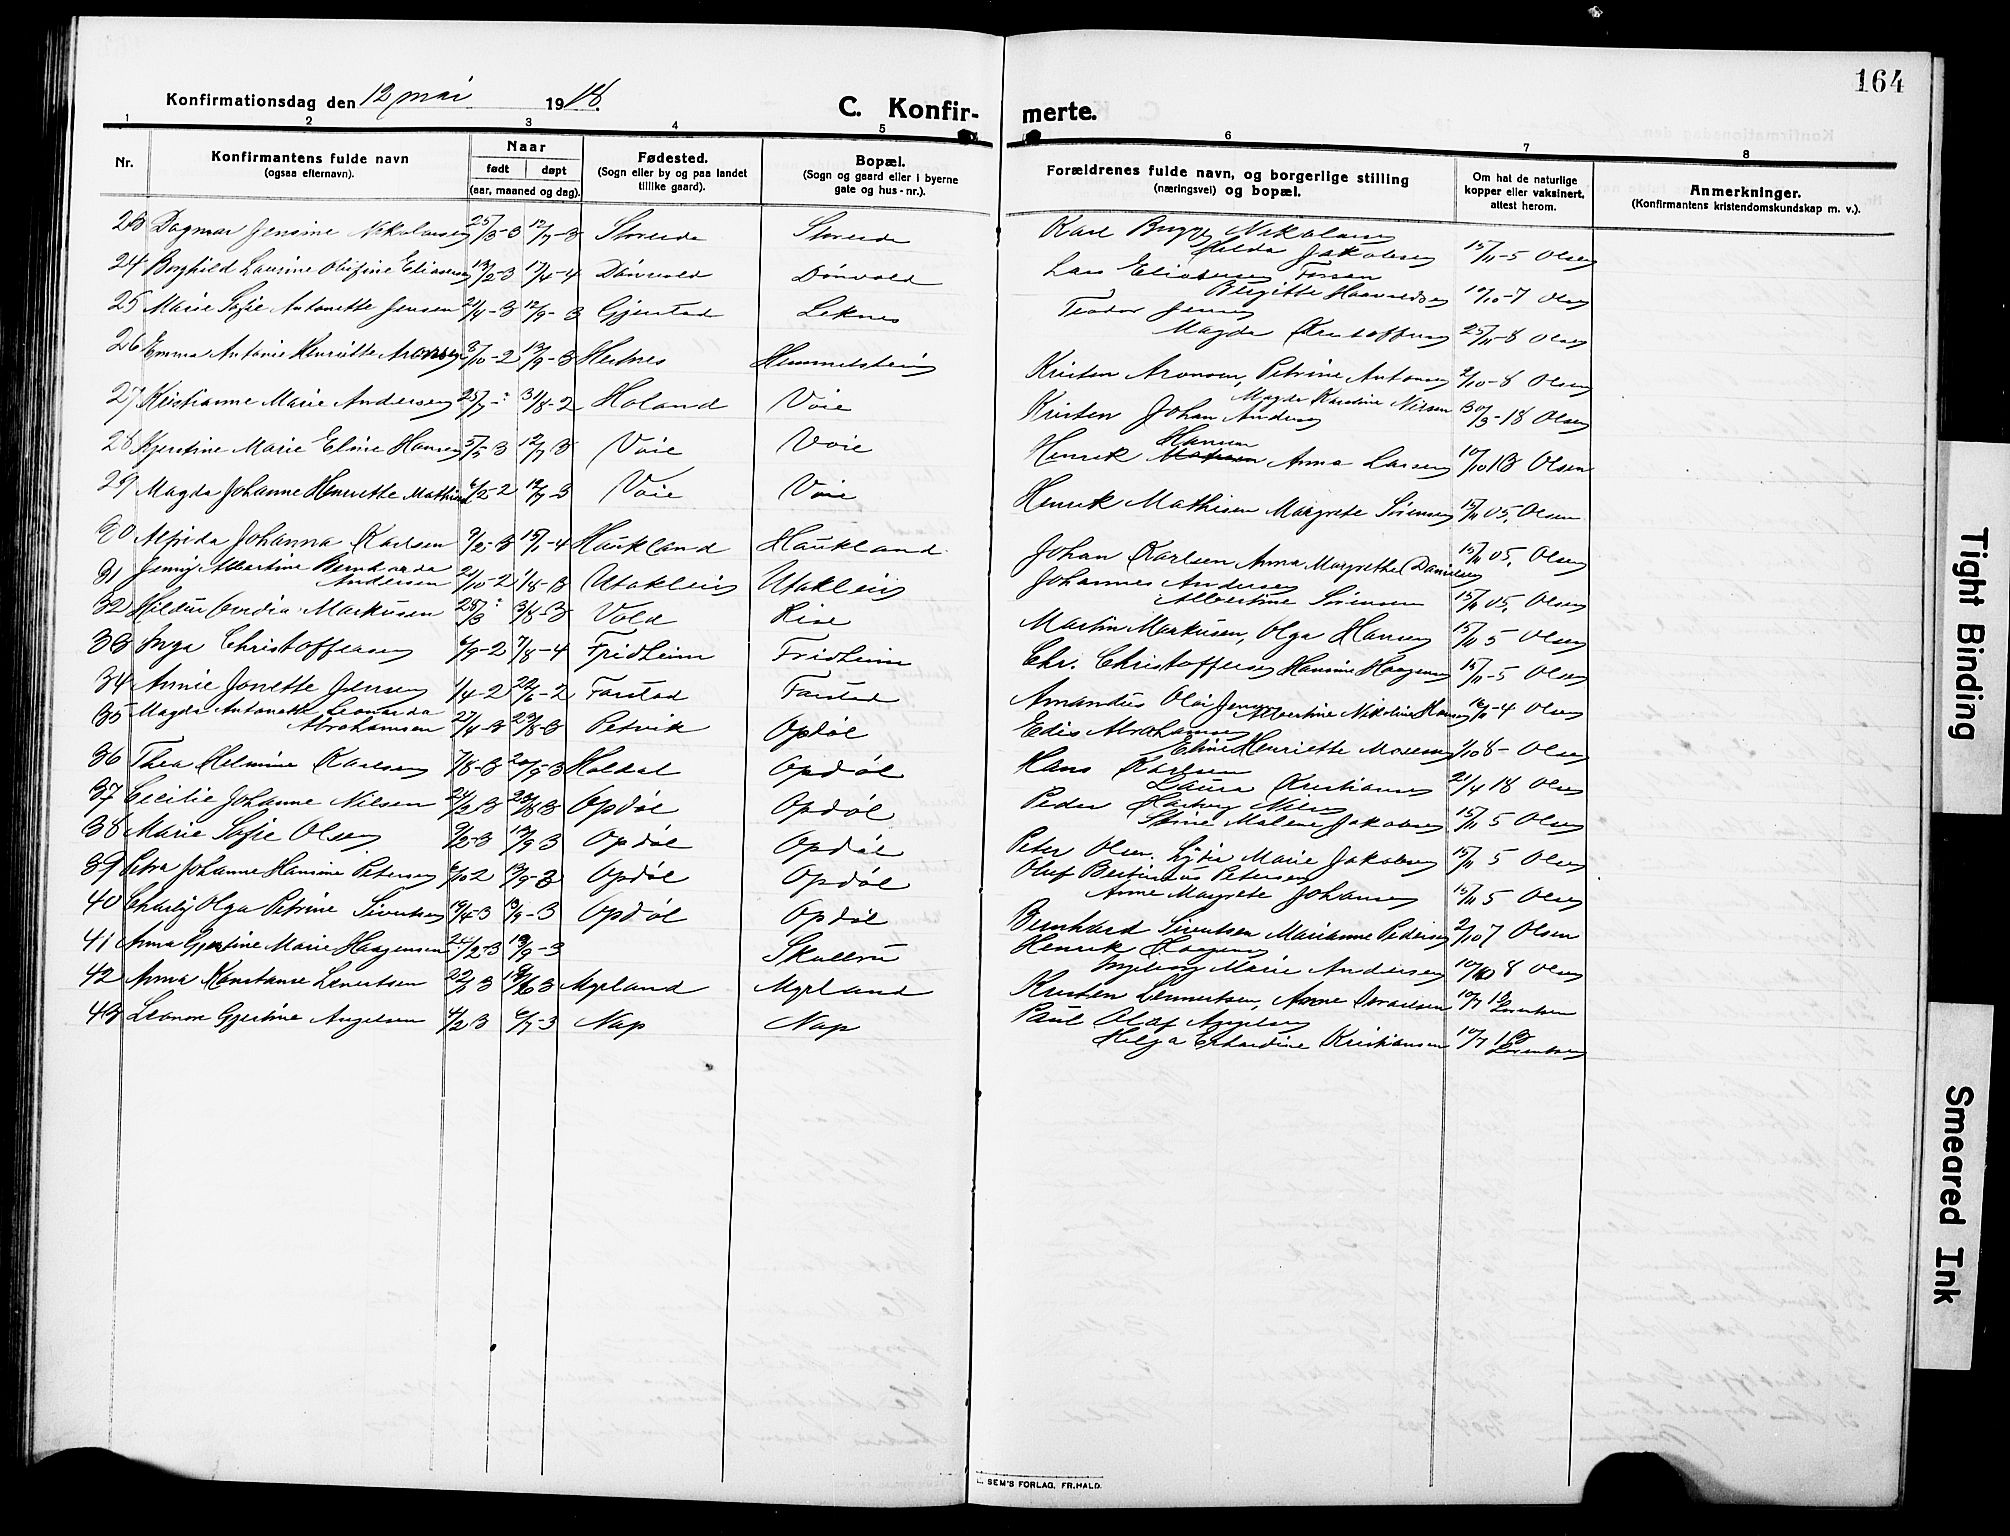 164
Konfirmationsdag den 12 mai 1918.
C. Konfir- merte.
1 2 3 4 5 6 7 8
Nr.
Konfirmantens fulde navn
(ogsaa efternavn).
Naar
født døpt
(aar, maaned og dag).
Fødested.
(Sogn eller by og paa landet
tillike gaard).
Bopæl.
(Sogn og gaard eller i byerne
gate og hus-nr.).
Forældrenes fulde navn, og borgerlige stilling
(næringsvei) og bopæl.
Om hat de naturlige
kopper eller vaksinert,
attest herom.
Anmerkninger.
(Konfirmantens kristendomskundskap m. v.).
23 Dagmar Jensine Nikolaisen 25/3-3 12/7-3 Storeide Storeide Karl Bugge Nikolaisen
Hilda Jakobsen 15/11-5 Olsen
24 Borghild Laurine Olufine Eliassen 13/2-3 17/4-4 Dønvold Dønvold Lars Eliassen
Birgitte Haavaldsen 10/10-7 Olsen
25 Marie Sofie Antonette Jensen 21/4-3 12/9-3 Gjerstad Leknes Teodor Jensen
Magda Kristoffersen 25/11-8 Olsen
26 Emma Antonie Henriette Aronsen 8/10-2 13/9-3 Hednes Himmelstein Kristen Aronsen, Petrine Antonsen 2/10-8 Olsen
27 Kristianne Marie Andersen 25/7-2 31/8-2 Holand Voie Kristen Johan Andersen
Magda Karoline Nilsen 30/3-18 Olsen
28 Kjerstine Marie Eline Hansen 5/5 3 12/7 3 Voie Voie Henrik Hansen Anna Larsen 10/10 13 Olsen
29 Magda Johanne Henriette Mathisen 6/12-2 12/7-3 Voie Voie Henrik Mathisen Margrete Sørensen 15/11 05, Olsen
30 Alfrida Johanna Karlsen 9/2-3 15/1-4 Haukland Haukland Johan Karlsen Anna Margrethe Danielsen 15/11 05, Olsen
31 Jenny Albertine Bernharda
Andersen 21/10-2 1/8-3 Utakleiv Utakleiv Johannes Andersen
Albertine Sørensen 15/11 05, Olsen
32 Hildur Ovedia Markusen 28/3 3/8-3 Vold Rise Martin Markusen, Olga Hansen 15/11 5 Olsen
33 Inga Christoffersen 6/9-2 7/8-4 Fridheim Fridheim Chr. Christoffersen Hansine Haagensen 15/11-5 Olsen
34 Annie Jonette Jensen 1/4-2 22/6-2 Farstad Farstad Amandus Olai Jensen
Albertine Nikoline Hansen 16/11-4 Olsen
35 Magda Antonette Leonarda
Abrahamsen 27/4-3 23/8-3 Petvik Opdøl Edis Abrahamsen
Eline Henriette Mosesen 1/10 8- Olsen
36 Thea Helmine Karlsen 7/8-3 20/9-3 Holdal Opdøl Hans Karlsen
Laura Kristiansen 21/4 18 Olsen
37 Cecilie Johanne Nilsen 24/2 3 23/8 3 Opdøl Opdøl Peder Hartvig Nilsen
Stine Malene Jakobsen 15/11 5 Olsen
38 Marie Sofie Olsen 9/2-3 13/9 3 Opdøl Opdøl Peter Olsen. Lydia Marie Jakobsen 15/11 5 Olsen
39 Petra Johanne Hansine Petersen 6/10 2 13/9-3 Opdøl Opdøl Oluf Bertinius Petersen
Anne Margrete Johansen 15/11 5 Olsen
40 Charly Olga Petrine Sivertsen 19/4-3 13/9-3 Opdøl Opdøl Bernhard Sivertsen Marianne Pedersen 2/10 7 Olsen
41 Anna Gjertine Marie Haagensen 24/2-3 13/9-3 Skullbru Henrik Haagensen
Ingeborg Marie Andersen 10/10 8 Olsen
42 Anna Konstanse Lenertsen 22/1 3 19/6 3 Myrland Myrland Kristen Lennertsen, Anne Israelsen 10/7 12 Lorentsen
43 Leonore Gjertine Angelsen 4/2 3 6/7-3 Nap Nap Paul Olaf Angelsen
Helga Erhardine Kristiansen 10/7 12 Lorentsen
SEM'S FORLAG, FR.HALD.
Tight Binding
Smeared Ink